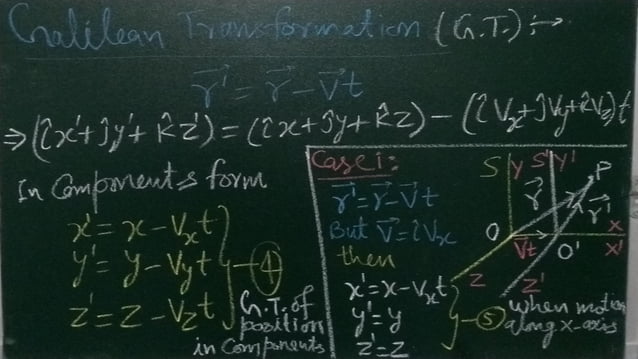 Galilean Transformation (G.T.):→
r⃗' = r⃗ - v⃗t
⇒ (îx'+ĵy'+k̂z') = (îx+ĵy+k̂z) - (îVx+ĵVy+k̂Vz)t
In Components form
x' = x - Vxt
y' = y - Vyt
z' = z - Vzt
④
G.T. of
position
in Components
Case i:
r⃗' = r⃗ - v⃗t
But v⃗ = îVx
then
x' = x - Vxt
y' = y
z' = z
⑤
when motion
along x-axis
S Y S' Y' P
r⃗ r⃗'
O Vt O' X X'
Z Z'